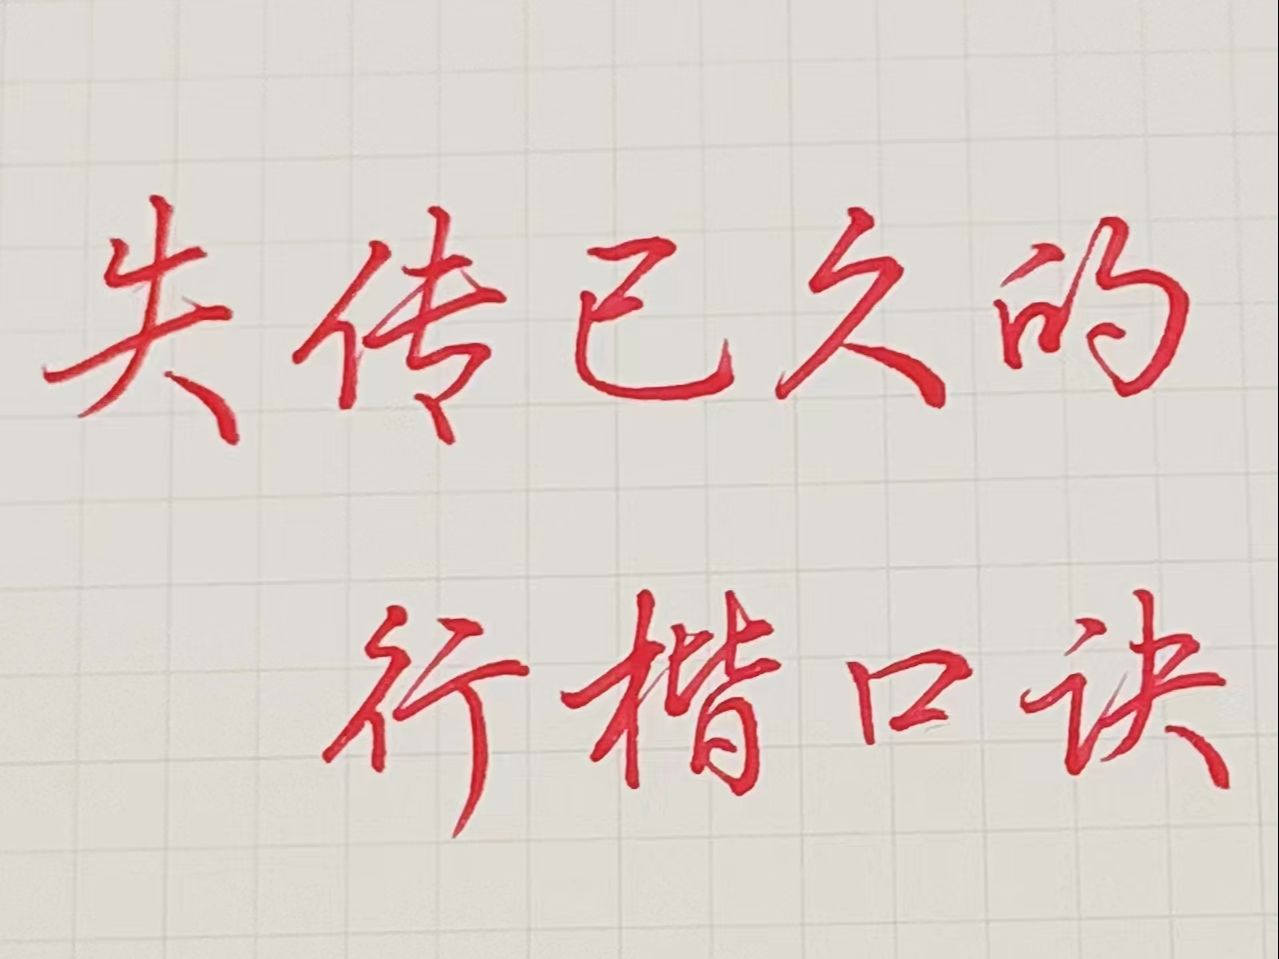 失传已久的
行楷口诀